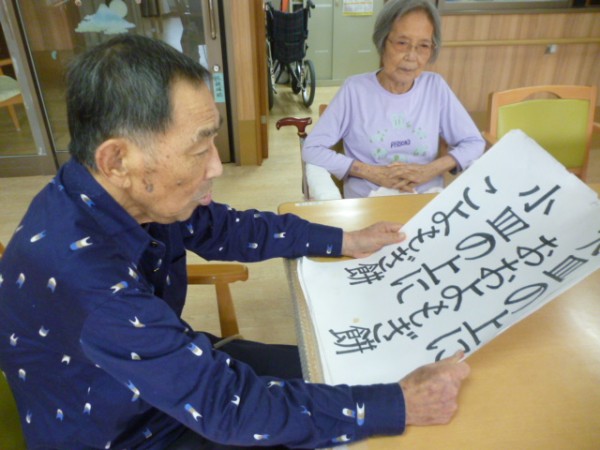 小皿の上に
おおよもぎ餅
小皿の上に
こよもぎ餅